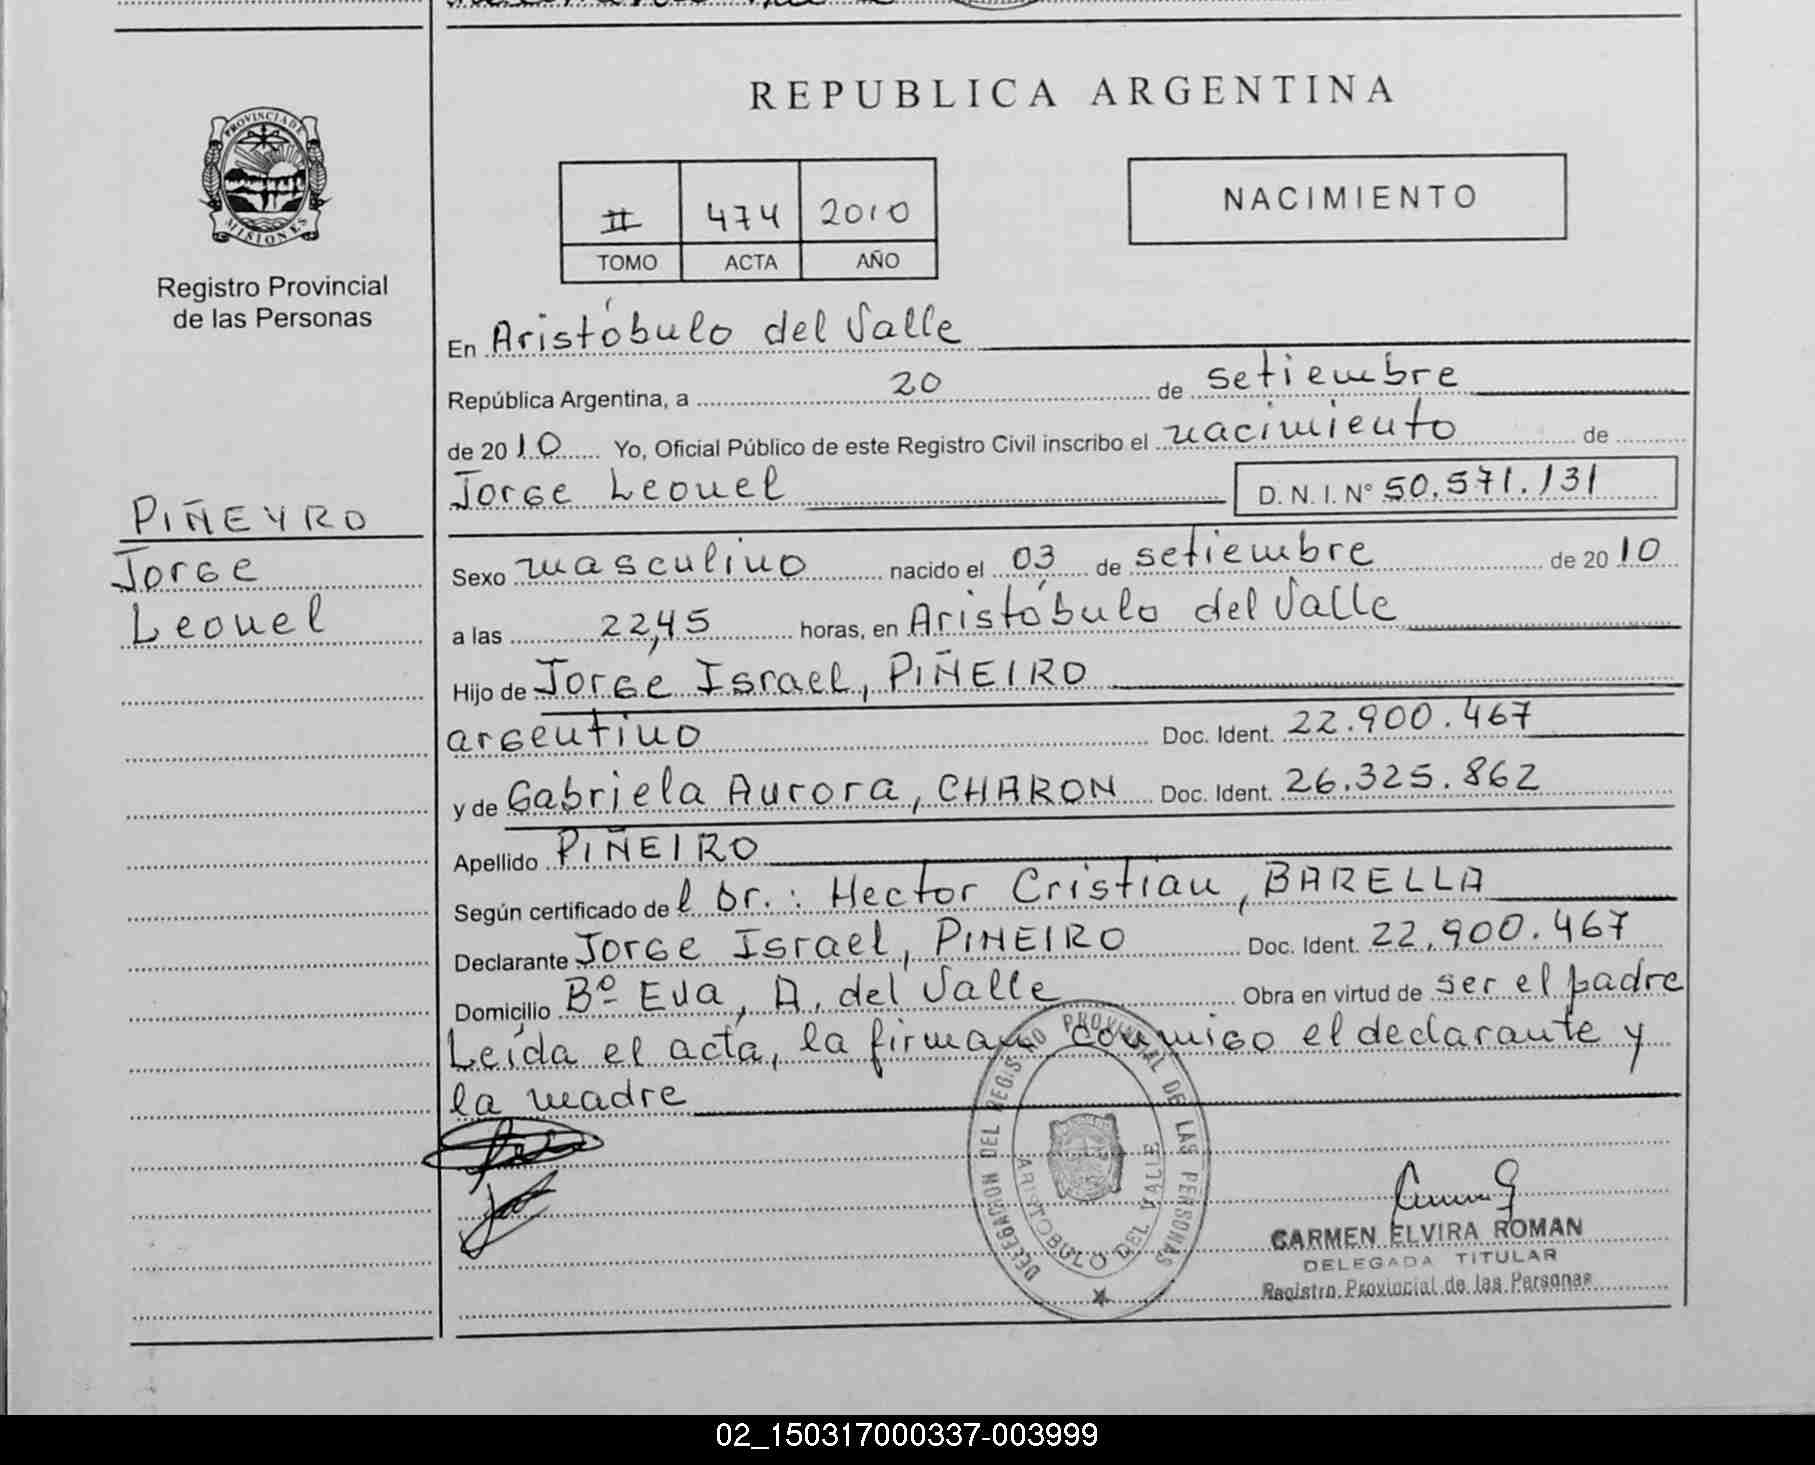 REPUBLICA ARGENTINA
PROVINCIA DE
MISIONES
Registro Provincial
de las Personas
II 474 2010
TOMO ACTA AÑO
NACIMIENTO
En Aristóbulo del Valle
República Argentina, a 20 de setiembre
de 2010 Yo, Oficial Público de este Registro Civil inscribo el nacimiento de
Jorge Leonel D. N. I. N° 50.571.131
PIÑEYRO
Jorge
Leonel
Sexo masculino nacido el 03 de setiembre de 2010
a las 22,45 horas, en Aristóbulo del Valle
Hijo de Jorge Israel, PIÑEIRO
argentino Doc. Ident. 22.900.467
y de Gabriela Aurora, CHARON Doc. Ident. 26.325.862
Apellido PIÑEIRO
Según certificado del Dr.: Hector Cristian, BARELLA
Declarante Jorge Israel, PIÑEIRO Doc. Ident. 22.900.467
Domicilio Bº Eva, A. del Valle Obra en virtud de ser el padre
Leída el acta, la firman conmigo el declarante y
la madre
DELEGACION DEL REGISTRO PROVINCIAL DE LAS PERSONAS
ARISTOBULO DEL VALLE
CARMEN ELVIRA ROMAN
DELEGADA TITULAR
Registro Provincial de las Personas
02_150317000337-003999